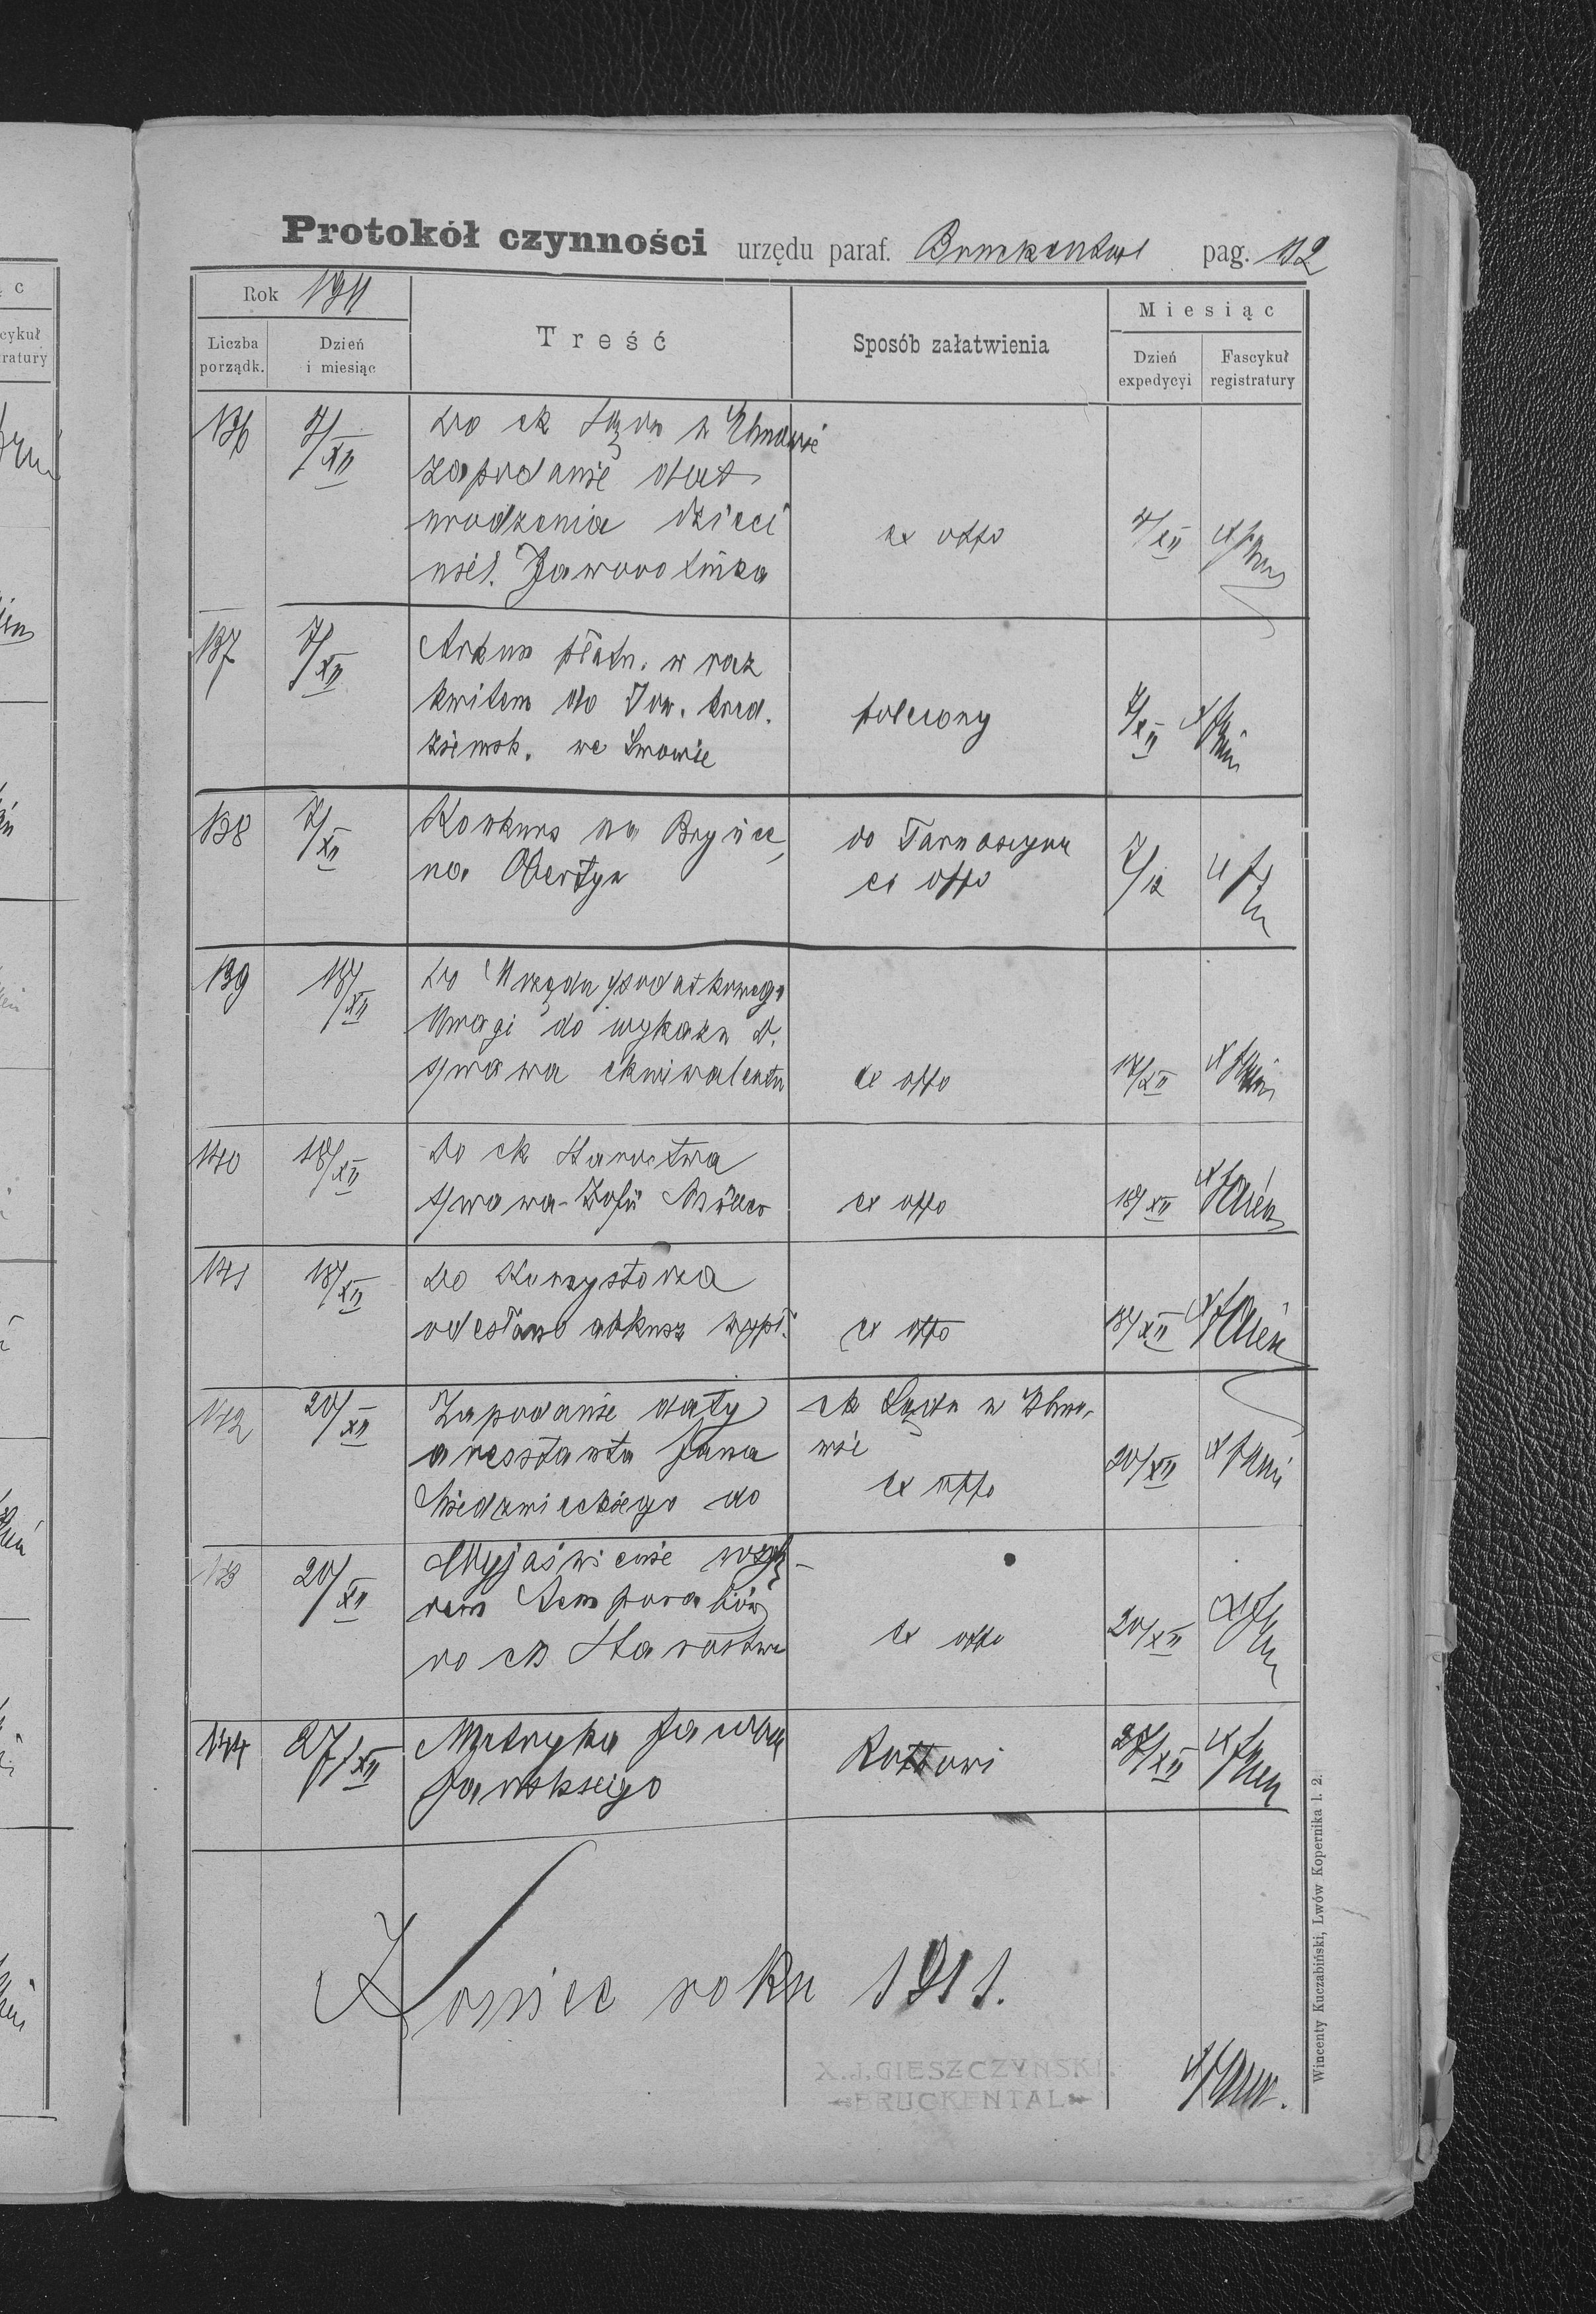 Protokół czynności urzędu paraf. Bruckental pag. 112
Rok 1911
Liczba porządk.
Dzień i miesiąc
Treść
Sposób załatwienia
Miesiąc
Dzień expedycyi
Fascykuł registratury
136 4/XII Do ck Sądu w Uhnowie
zapodanie dat
urodzenia dzieci
ex offo 4/XII
137 7/XII Arkusz płatn. w raz
kwitem do Tow. kred.
ziemsk. we Lwowie
polecony 7/XII
138 7/XII Konkurs na Bryńce,
na Obertyn
do Tarnoszyna
ex offo 7/12
139 18/XII Do Urzędu podatkowego
Uwagi do wykazu d.
sprawa ekwiwalentu
ex offo 17/XII
140 18/XII Do ck Starostwa
sprawa Zofii Müller
ex offo 18/XII
141 18/XII Do Konzystorza
odesłano arkusz wypł.
ex offo 18/XII
142 20/XII Zapodanie daty
aresztanta Jana
Niedzwieckiego do
ck Sądu w Uhno-
wie
ex offo 20/XII
143 20/XII Wyjaśnienie wzglę-
dem Temporaliów
do ck Starostwa
ex offo 20/XII
144 27/XII Metryka
Jański​ego
27/XII
Koniec roku 1911.
X. J. GIESZCZYŃSKI.
BRUCKENTAL
Wincenty Kuczabiński, Lwów Kopernika l. 2.